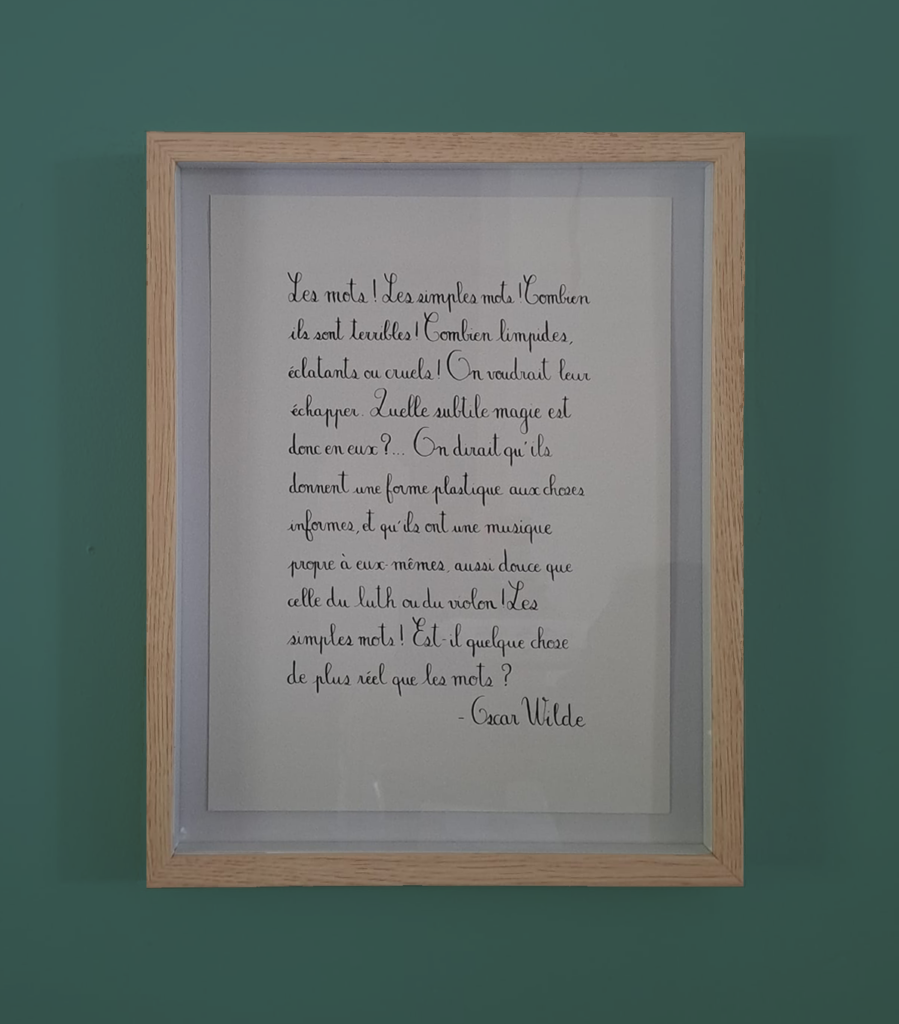 Les mots ! Les simples mots ! Combien
ils sont terribles ! Combien limpides,
éclatants ou cruels ! On voudrait leur
échapper. Quelle subtile magie est
donc en eux ?... On dirait qu'ils
donnent une forme plastique aux choses
informes, et qu'ils ont une musique
propre à eux-mêmes, aussi douce que
celle du luth ou du violon ! Les
simples mots ! Est-il quelque chose
de plus réel que les mots ?
- Oscar Wilde